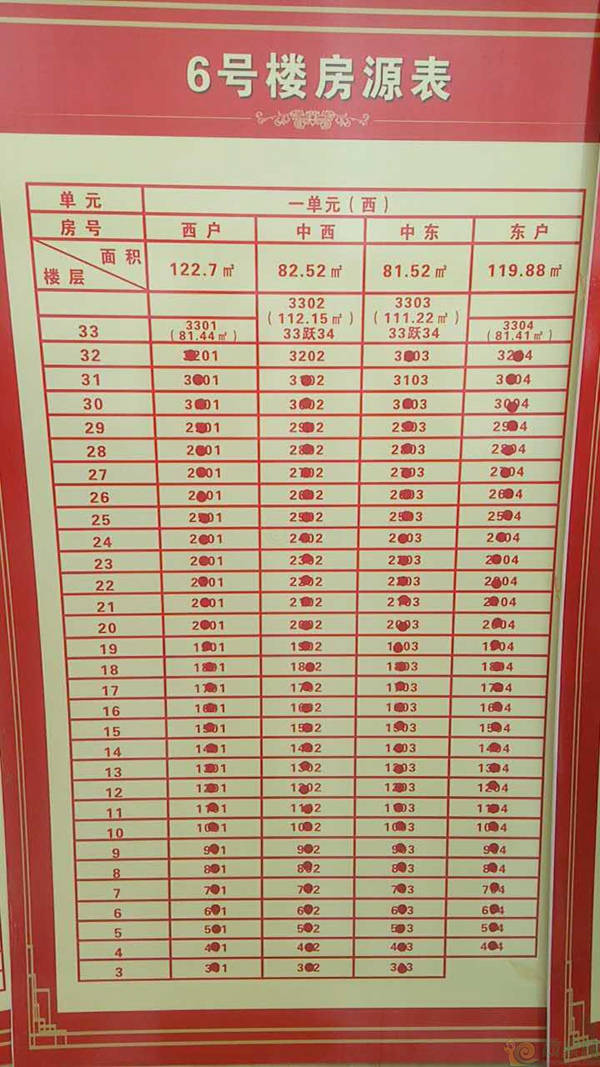 6号楼房源表
单元 一单元(西)
房号 西户 中西 中东 东户
面积
楼层
122.7㎡ 82.52㎡ 81.52㎡ 119.88㎡
3302 3303
(112.15㎡) (111.22㎡)
33 3301 33跃34 33跃34 3304
(81.44㎡) (81.41㎡)
32 3201 3202 3203 3204
31 3101 3102 3103 3104
30 3001 3002 3003 3004
29 2901 2902 2903 2904
28 2801 2802 2803 2804
27 2701 2702 2703 2704
26 2601 2602 2603 2604
25 2501 2502 2503 2504
24 2401 2402 2403 2404
23 2301 2302 2303 2304
22 2201 2202 2203 2204
21 2101 2102 2103 2104
20 2001 2002 2003 2004
19 1901 1902 1903 1904
18 1801 1802 1803 1804
17 1701 1702 1703 1704
16 1601 1602 1603 1604
15 1501 1502 1503 1504
14 1401 1402 1403 1404
13 1301 1302 1303 1304
12 1201 1202 1203 1204
11 1101 1102 1103 1104
10 1001 1002 1003 1004
9 901 902 903 904
8 801 802 803 804
7 701 702 703 704
6 601 602 603 604
5 501 502 503 504
4 401 402 403 404
3 301 302 303